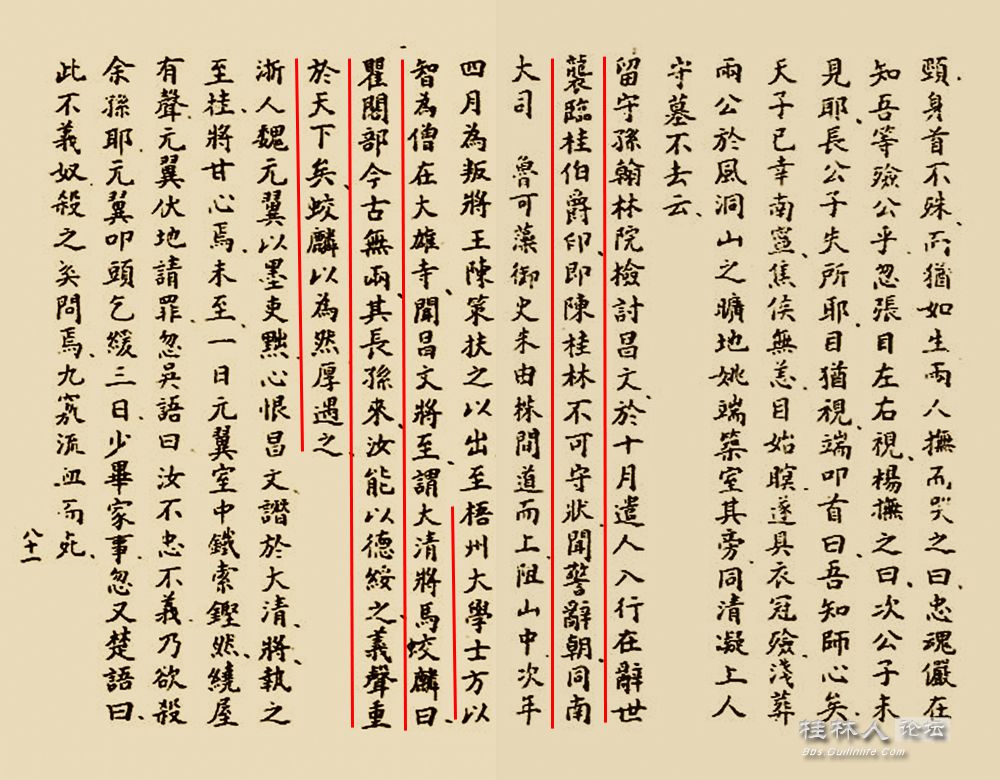 頸身首不殊、而猶如生兩人撫而哭之曰、忠魂儼在
知吾等殮公乎忽張目左右視、楊撫之曰、次公子未
見耶、長公子失所耶、目猶視、端叩首曰、吾知師心矣、
天子已幸南寧、焦侯無恙、目始瞑、遂具衣冠殮、淺葬
兩公於風洞山之曠地姚端築室其旁、同清凝上人
守墓不去云、
留守孫翰林院檢討昌文、於十月遣人入行在辭世
襲臨桂伯爵印、即陳桂林不可守狀聞警辭朝、同南
大司　魯可藻御史朱由㭎間道而上阻山中次年
四月為叛將王陳策扶之以出至梧州大學士方以
智為僧在大雄寺、聞昌文將至、謂大清將馬蛟麟曰、
瞿閣部今古無兩、其長孫來、汝能以德綏之、義聲重
於天下矣、蛟麟以為然厚遇之、
浙人魏元翼以墨吏黜心恨昌文譖於大清、將執之
至桂、將甘心焉、未至一日元翼室中鐵索鏗然、繞屋
有聲、元翼伏地請罪、忽吳語曰汝不忠不義、乃欲殺
余孫耶、元翼叩頭乞緩三日、少畢家事、忽又楚語曰、
此不義奴殺之矣問焉、九竅流血而死、
八十一
桂林人 论坛
Bbs.Guilinlife.Com